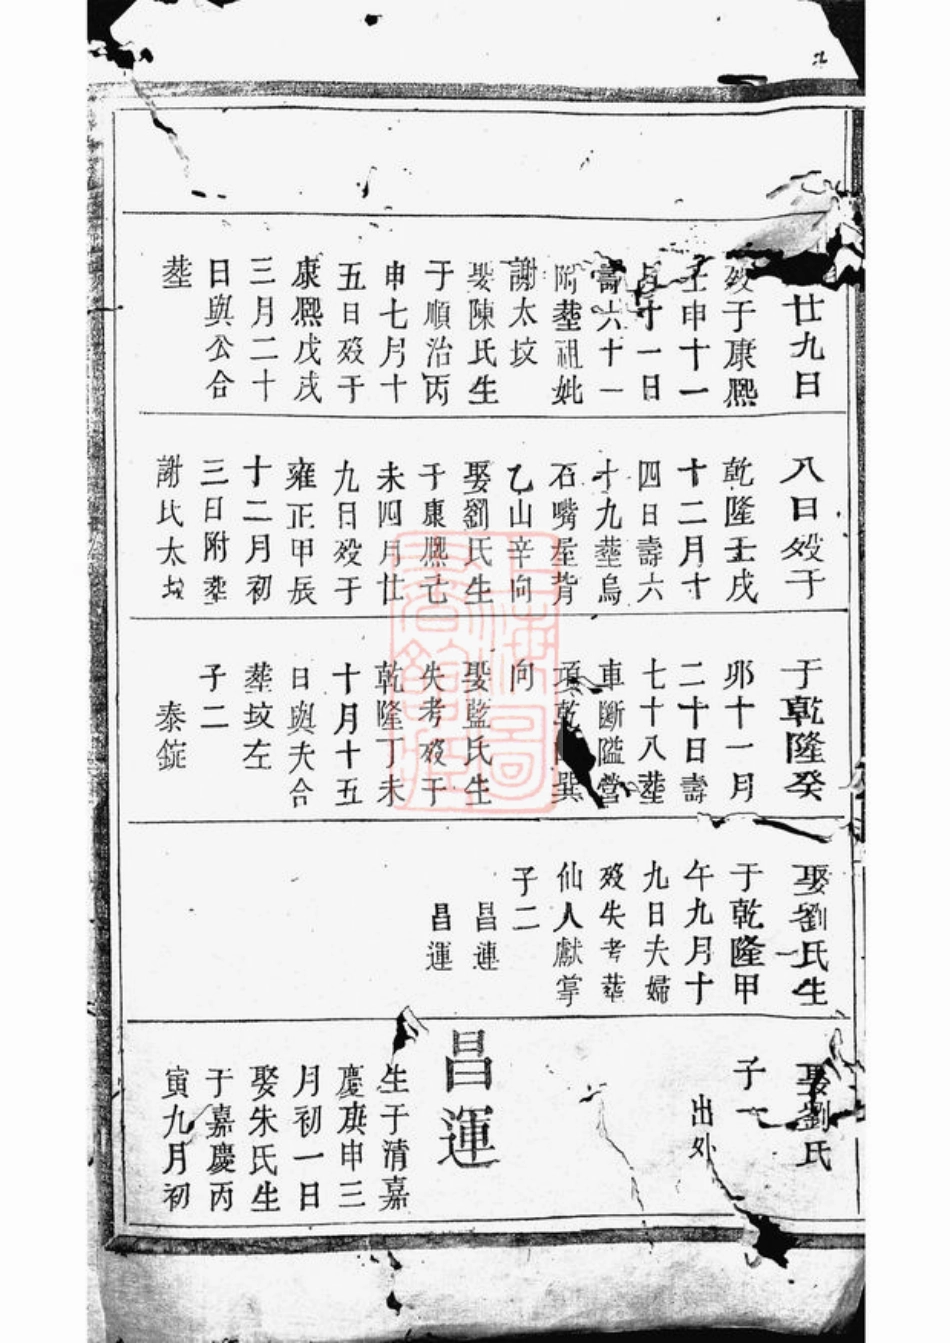 廿九日
殁于康熈
壬申十一
月十一日
壽六十一
附塟祖妣
謝太坟
娶陳氏生
于順治丙
申七月十
五日殁于
康熈戊戌
三月二十
日與公合
塟
八日殁于
乾隆壬戌
十二月十
四日壽六
十九塟烏
石嘴屋背
乙山辛向
娶劉氏生
于康熈乇
未四月廿
九日殁于
雍正甲辰
十二月初
三日附塟
謝氏太坟
于乾隆癸
夘十一月
二十日壽
七十八塟
車斷隘營
項乾巽
向
娶藍氏生
失考殁于
乾隆丁未
十月十五
日與夫合
塟坟左
子二
泰錠
娶劉氏生
于乾隆甲
午九月十
九日夫婦
殁失考塟
仙人獻掌
子二
昌連
昌運
娶劉氏
子一
出外
昌運
生于清嘉
慶庚申三
月初一日
娶朱氏生
于嘉慶丙
寅九月初